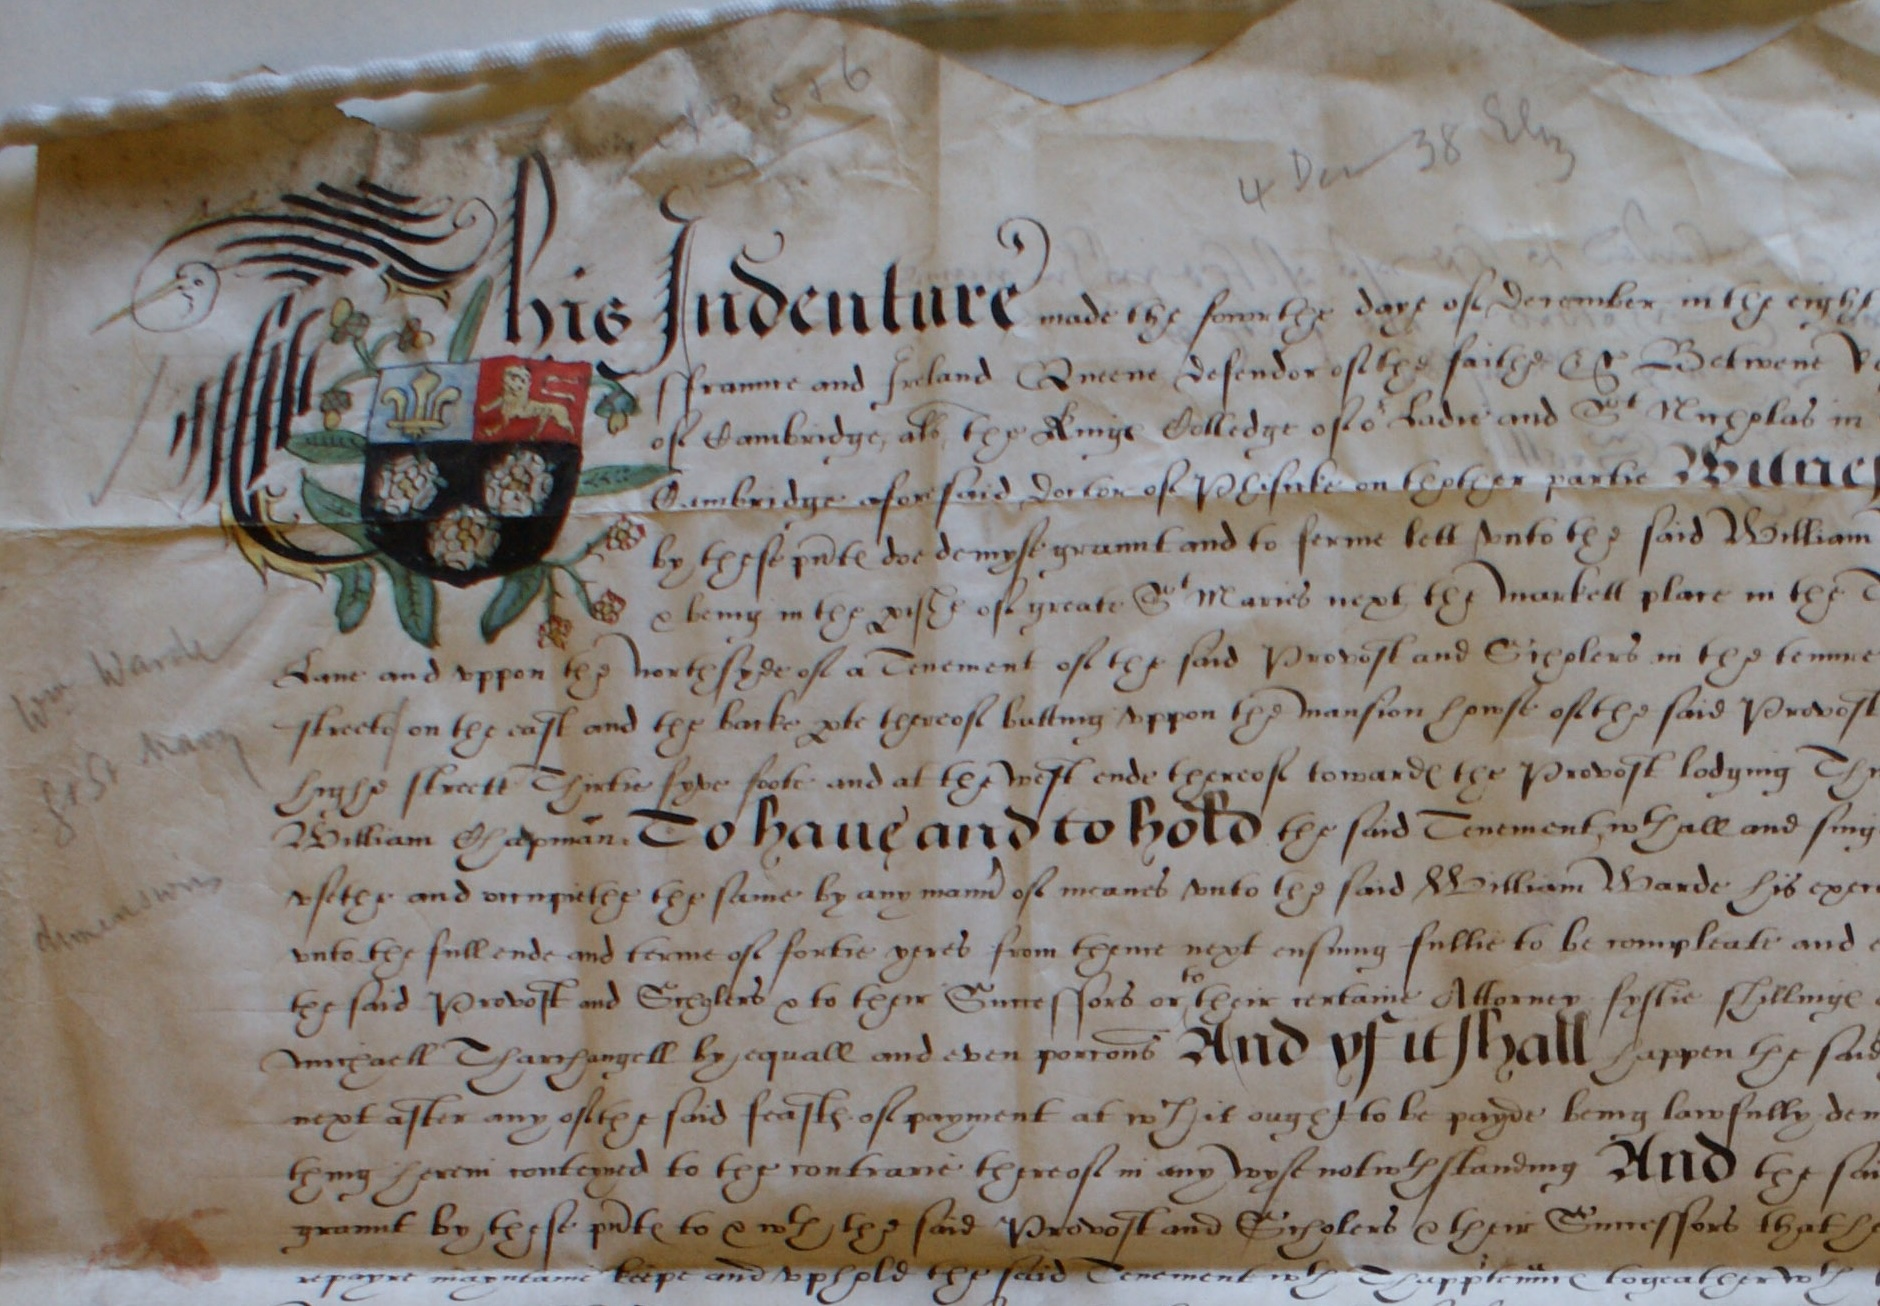 4 Dec 38 Eliz
This Indenture made the fowrthe daye of December, in the eight
ffraunce and Ireland Queene defendor of the faithe &c Betwene
of Cambridge, als the Kinge Colledge of or Ladie and St Nicholas in
Cambridge aforesaid doctor of Phisicke on thother partie Witnes
by these pnte doe demyse graunt and to ferme lett vnto the said William
& being in the pishe of greate St Maries next the markett place in the
Lane and vppon the northsyde of a Tenement of the said Provost and Scholers in the tenure
streete on the east and the backe pte thereof butting vppon the mansion howse of the said Provost
highe streete Thirtie fyve foote and at the west ende thereof towarde the Provost lodging
William Chapman. To haue and to hold the said Tenement wth all and sing
vsethe and occupiethe the same by any mann of meanes vnto the said William Warde his exec
vnto the full ende and terme of fortie yeres from thence next ensuing fullie to be compleate and
the said Provost and Scholers & to their Successors or to their certaine Attorney fyftie shillinge
Michaell Tharchangell by equall and even porcons And yf it shall happen the said
next after any of the said feaste of payment at wch it ought to be payde being lawfully dem
thing herein conteyned to the contrarie thereof in any wyse notwthstanding And the sai
graunt by these pnte to & wth the said Provost and Scholers & their Successors that he
repayre maynteine keepe and vphold the said Tenement wth Thapptennce togeather wth
Wm Warde
Gt St Mary
dimensions